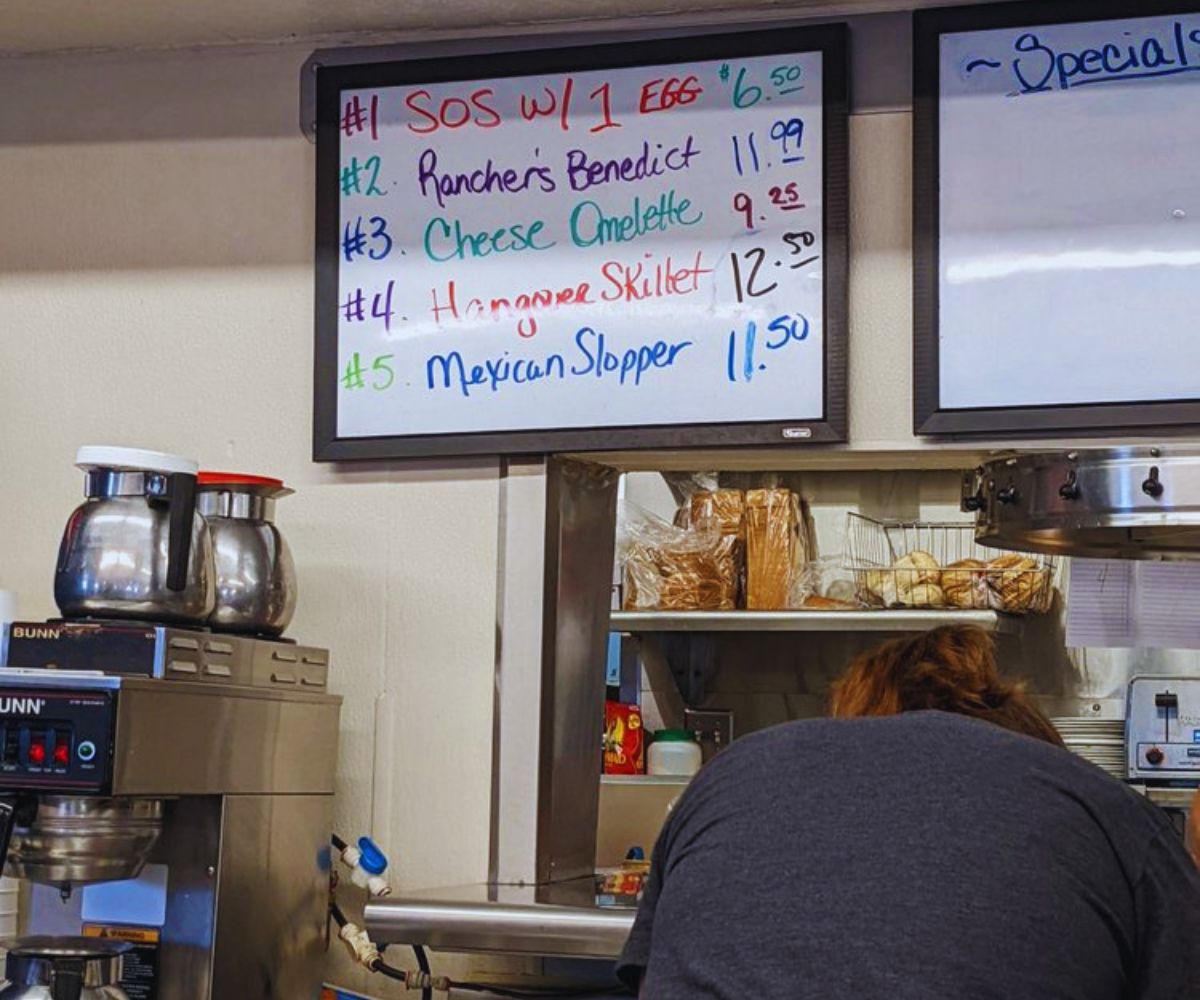 #1 SOS W/ 1 EGG $6.50
#2. Rancher's Benedict 11.99
#3. Cheese Omelette 9.25
#4. Hangover Skillet 12.50
#5. Mexican Slopper 11.50
~ Specials
BUNN
UNN
WARNING